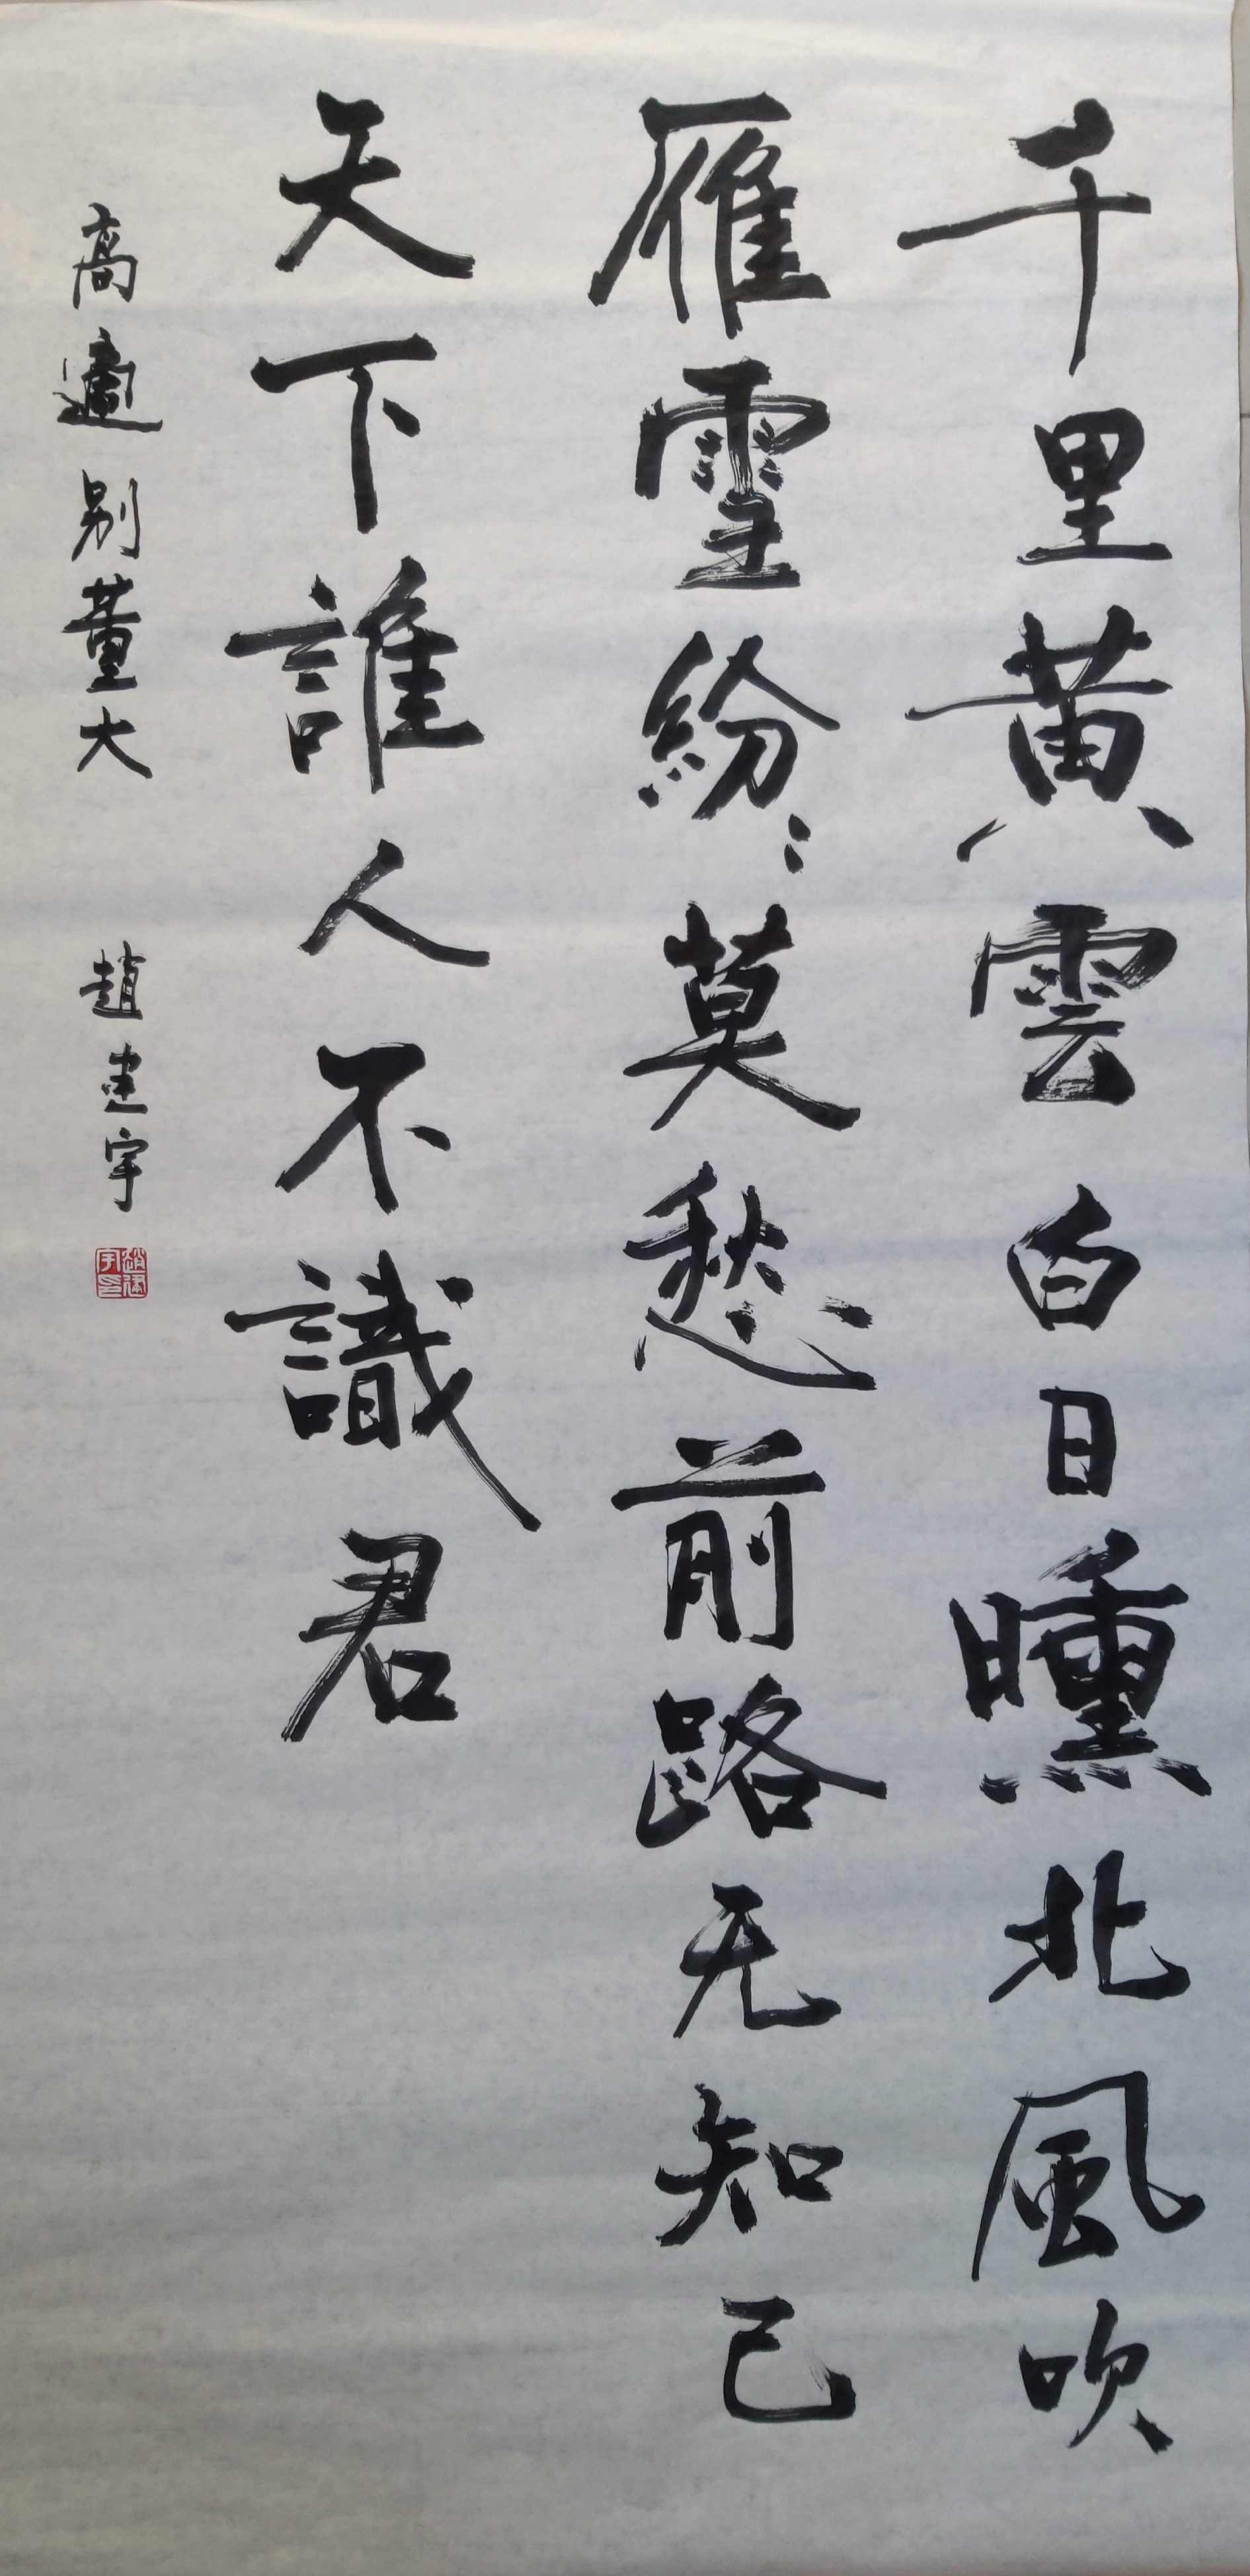 千里黄雲白日曛北風吹
雁雪紛〻莫愁前路无知己
天下誰人不識君
高適別董大
趙建宇
趙建宇印